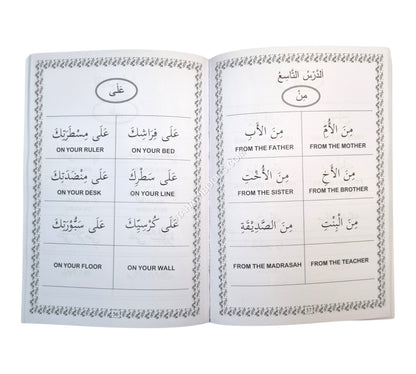 اَلدَّرْسُ التَّاسِعُ
مِنْ
مِنَ الْأُمِّ
FROM THE MOTHER
مِنَ الْأَبِ
FROM THE FATHER
مِنَ الْأَخِ
FROM THE BROTHER
مِنَ الْأُخْتِ
FROM THE SISTER
مِنَ الْبِنْتِ
مِنَ الصَّدِيْقَةِ
FROM THE TEACHER
FROM THE MADRASAH
عَلَى
عَلَى فِرَاشِكَ
ON YOUR BED
عَلَى مِسْطَرَتِكَ
ON YOUR RULER
عَلَى سَطْرِكَ
ON YOUR LINE
عَلَى مِنْضَدَتِكَ
ON YOUR DESK
عَلَى كُرْسِيِّكَ
عَلَى سَبُّوْرَتِكَ
ON YOUR WALL
ON YOUR FLOOR